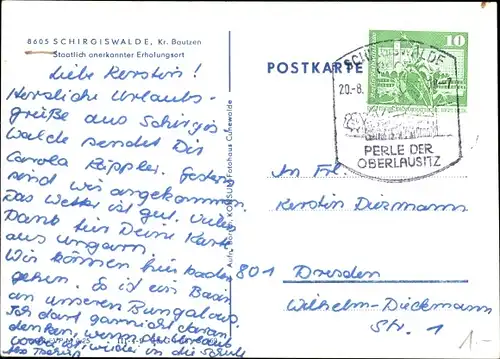 8605 SCHIRGISWALDE, Kr. Bautzen
Staatlich anerkannter Erholungsort
Liebe Kerstin!
Herzliche Urlaubs-
grüße aus Schirgis-
walde sendet Dir
Carola Rippler. Gestern
sind wir angekommen.
Das Wetter ist gut. Vielen
Dank für Deine Karte
aus Ungarn.
Wir können hier baden
gehen. Es ist ein Bad
an unseren Bungalows.
Ich darf garnicht daran
denken, wenn der Urlaub
in die Schule
POSTKARTE
10
SCHIRGISWALDE
20.-8.
PERLE DER
OBERLAUSITZ
KONSUM Fotohaus Cunewalde
An Frl.
Kerstin Dirzmann
801 Dresden
Wilhelm-Dieckmann
Str. 1
1.-